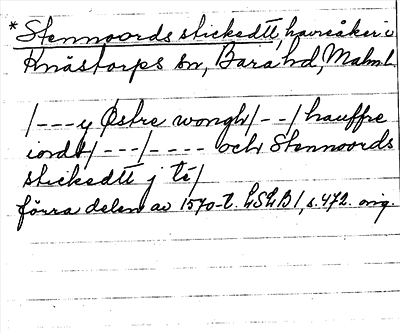 * Stennoords stickedtt, havreåker i
Knästorps sn, Bara hd, Malmh.
/---y Østre wongh/--/hauffre
iordt/---/---- och Stennoords
stickedtt j te/
förra delen av 1570-t. LSLB1, s.472. orig.